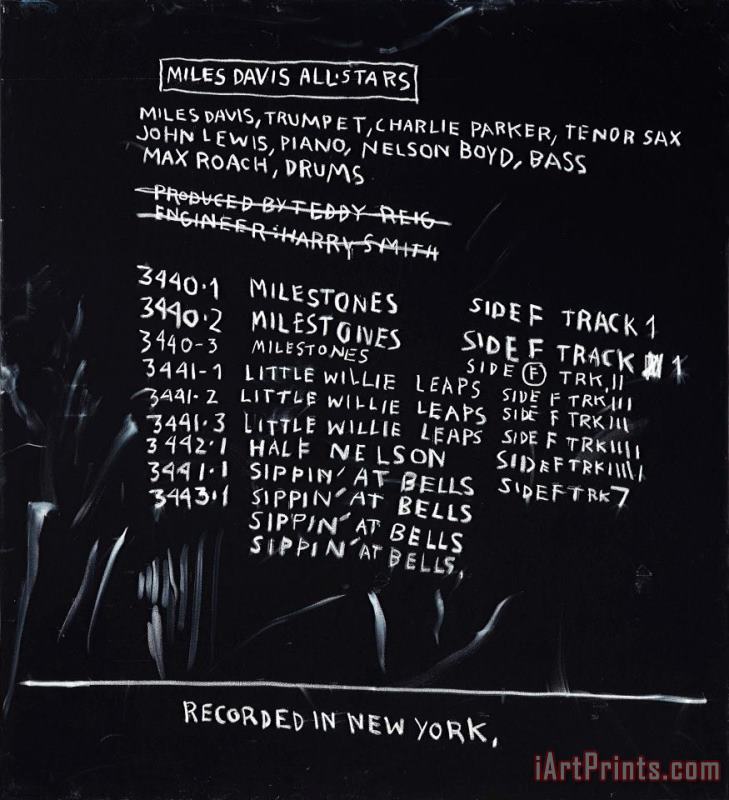 MILES DAVIS ALL·STARS
MILES DAVIS, TRUMPET, CHARLIE PARKER, TENOR SAX
JOHN LEWIS, PIANO, NELSON BOYD, BASS
MAX ROACH, DRUMS
PRODUCED BY TEDDY REIG
ENGINEER: HARRY SMITH
3440·1 MILESTONES SIDE F TRACK 1
3440·2 MILESTONES SIDE F TRACK 1
3440-3 MILESTONES SIDE F TRK II
3441-1 LITTLE WILLIE LEAPS SIDE F TRK III
3441·2 LITTLE WILLIE LEAPS SIDE F TRK III
3441·3 LITTLE WILLIE LEAPS SIDE F TRK IIII
3442·1 HALF NELSON SIDE F TRK IIIII
3441·1 SIPPIN' AT BELLS SIDE F TRK 7
3443·1 SIPPIN' AT BELLS
SIPPIN' AT BELLS
SIPPIN' AT BELLS.
RECORDED IN NEW YORK,
iArtPrints.com